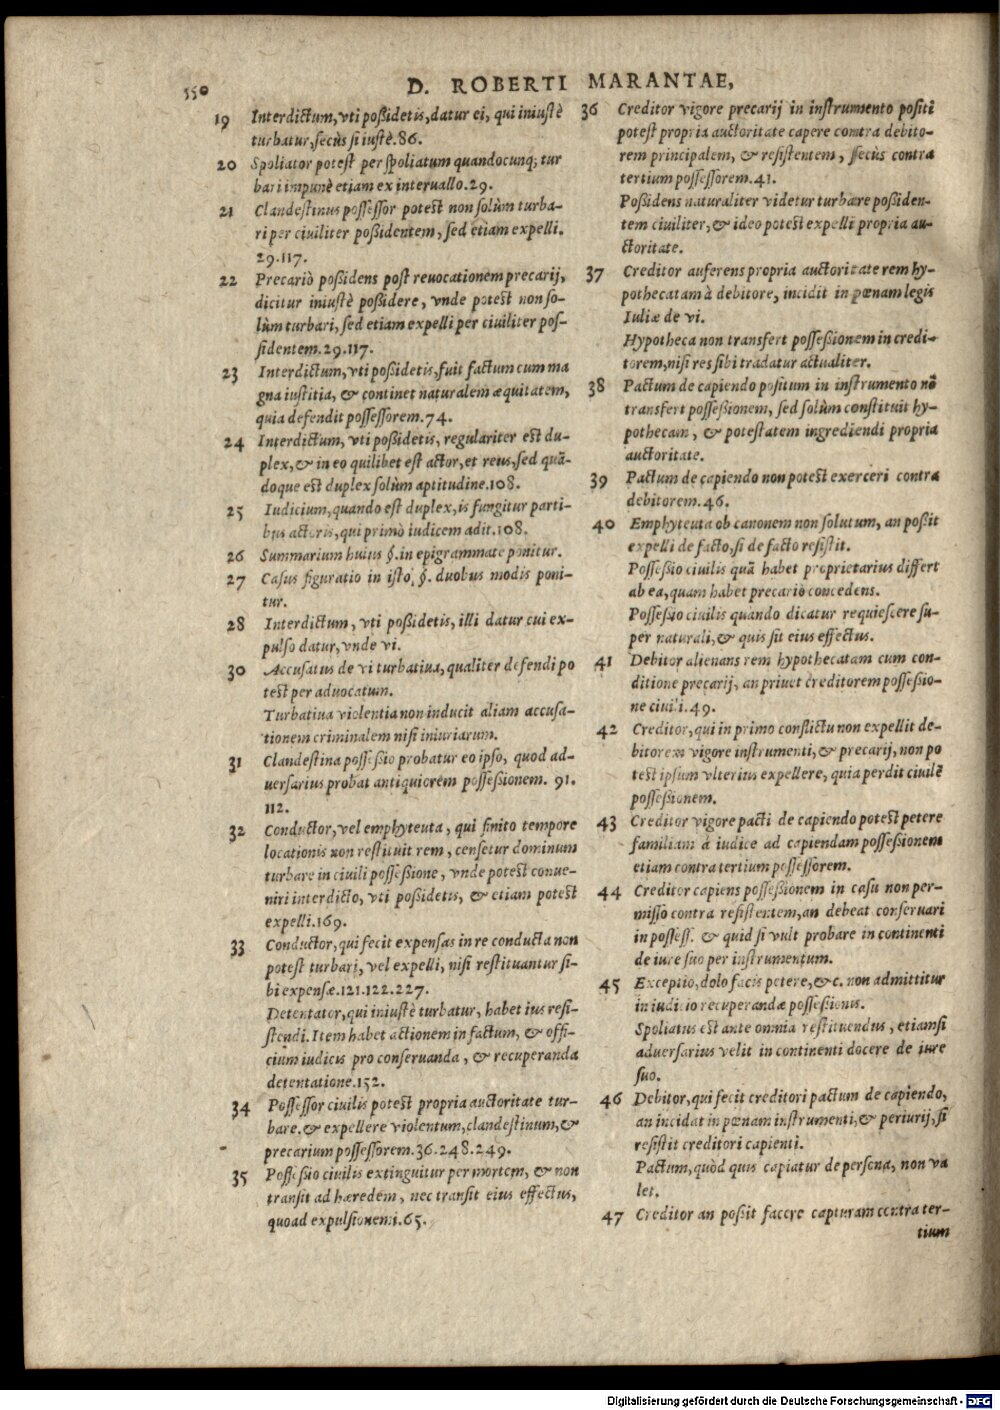 550
D. ROBERTI MARANTAE,
19 Interdictum, vti poßidetis, datur ei, qui iniustè
turbatur, secùs si iustè.86.
20 Spoliator potest per spoliatum quandocunq; tur
bari impunè etiam ex interuallo.29.
21 Clandestinus possessor potest non solùm turba-
ri per ciuiliter poßidentem, sed etiam expelli.
29.117.
22 Precariò poßidens post reuocationem precarij,
dicitur iniustè poßidere, vnde potest non so-
lùm turbari, sed etiam expelli per ciuiliter pos-
sidentem.29.117.
23 Interdictum, vti poßidetis, fuit factum cum ma
gna iustitia, & continet naturalem æquitatem,
quia defendit possessorem.74.
24 Interdictum, vti poßidetis, regulariter est du-
plex, & in eo quilibet est actor, et reus, sed quã-
doque est duplex solùm aptitudine.108.
25 Iudicium, quando est duplex, is fungitur parti-
bus actoris, qui primò iudicem adit.108.
26 Summarium huius §. in epigrammate ponitur.
27 Casus figuratio in isto, §. duobus modis poni-
tur.
28 Interdictum, vti poßidetis, illi datur cui ex-
pulso datur, vnde vi.
30 Accusatus de vi turbatiua, qualiter defendi po
test per aduocatum.
Turbatiua violentia non inducit aliam accusa-
tionem criminalem nisi iniuriarum.
31 Clandestina possessio probatur eo ipso, quod ad-
uersarius probat antiquiorem possessionem. 91.
112.
32 Conductor, vel emphyteuta, qui finito tempore
locationis non restituit rem, censetur dominum
turbare in ciuili possessione, vnde potest conue-
niri interdicto, vti poßidetis, & etiam potest
expelli.169.
33 Conductor, qui fecit expensas in re conducta non
potest turbari, vel expelli, nisi restituantur si-
bi expensæ.121.122.227.
Detentator, qui iniustè turbatur, habet ius resi-
stendi. Item habet actionem in factum, & offi-
cium iudicis pro conseruanda, & recuperanda
detentatione.152.
34 Possessor ciuilis potest propria auctoritate tur-
bare. & expellere violentum, clandestinum, &
precarium possessorem.36.248.249.
35 Possessio ciuilis extinguitur per mortem, & non
transit ad hæredem, nec transit eius effectus,
quoad expulsionem.65.
36 Creditor vigore precarij in instrumento positi
potest propria auctoritate capere contra debito-
rem principalem, & resistentem, secùs contra
tertium possessorem.41.
Poßidens naturaliter videtur turbare poßiden-
tem ciuiliter, & ideo potest expelli propria au-
ctoritate.
37 Creditor auferens propria auctoritate rem hy-
pothecatam à debitore, incidit in pœnam legis
Iuliæ de vi.
Hypotheca non transfert possessionem in credi-
torem, nisi res sibi tradatur actualiter.
38 Pactum de capiendo positum in instrumento nõ
transfert possessionem, sed solùm constituit hy-
pothecam, & potestatem ingrediendi propria
auctoritate.
39 Pactum de capiendo non potest exerceri contra
debitorem.46.
40 Emphyteuta ob canonem non solutum, an poßit
expelli de facto, si de facto resistit.
Possessio ciuilis quã habet proprietarius differt
ab ea, quam habet precariò concedens.
Possessio ciuilis quando dicatur requiescere su-
per naturali, & quis sit eius effectus.
41 Debitor alienans rem hypothecatam cum con-
ditione precarij, an priuet creditorem possessio-
ne ciuili.49.
42 Creditor, qui in primo conflictu non expellit de-
bitorem vigore instrumenti, & precarij, non po
test ipsum vlterius expellere, quia perdit ciuilē
possessionem.
43 Creditor vigore pacti de capiendo potest petere
familiam à iudice ad capiendam possessionem
etiam contra tertium possessorem.
44 Creditor capiens possessionem in casu non per-
misso contra resistentem, an debeat conseruari
in possess. & quid si vult probare in continenti
de iure suo per instrumentum.
45 Exceptio, dolo facis petere, &c. non admittitur
in iudicio recuperandæ possessionis.
Spoliatus est ante omnia restituendus, etiamsi
aduersarius velit in continenti docere de iure
suo.
46 Debitor, qui fecit creditori pactum de capiendo,
an incidat in pœnam instrumenti, & periurij, si
resistit creditori capienti.
Pactum, quòd quis capiatur de persona, non va
let.
47 Creditor an poßit facere capturam contra ter-
tium
Digitalisierung gefördert durch die Deutsche Forschungsgemeinschaft - DFG